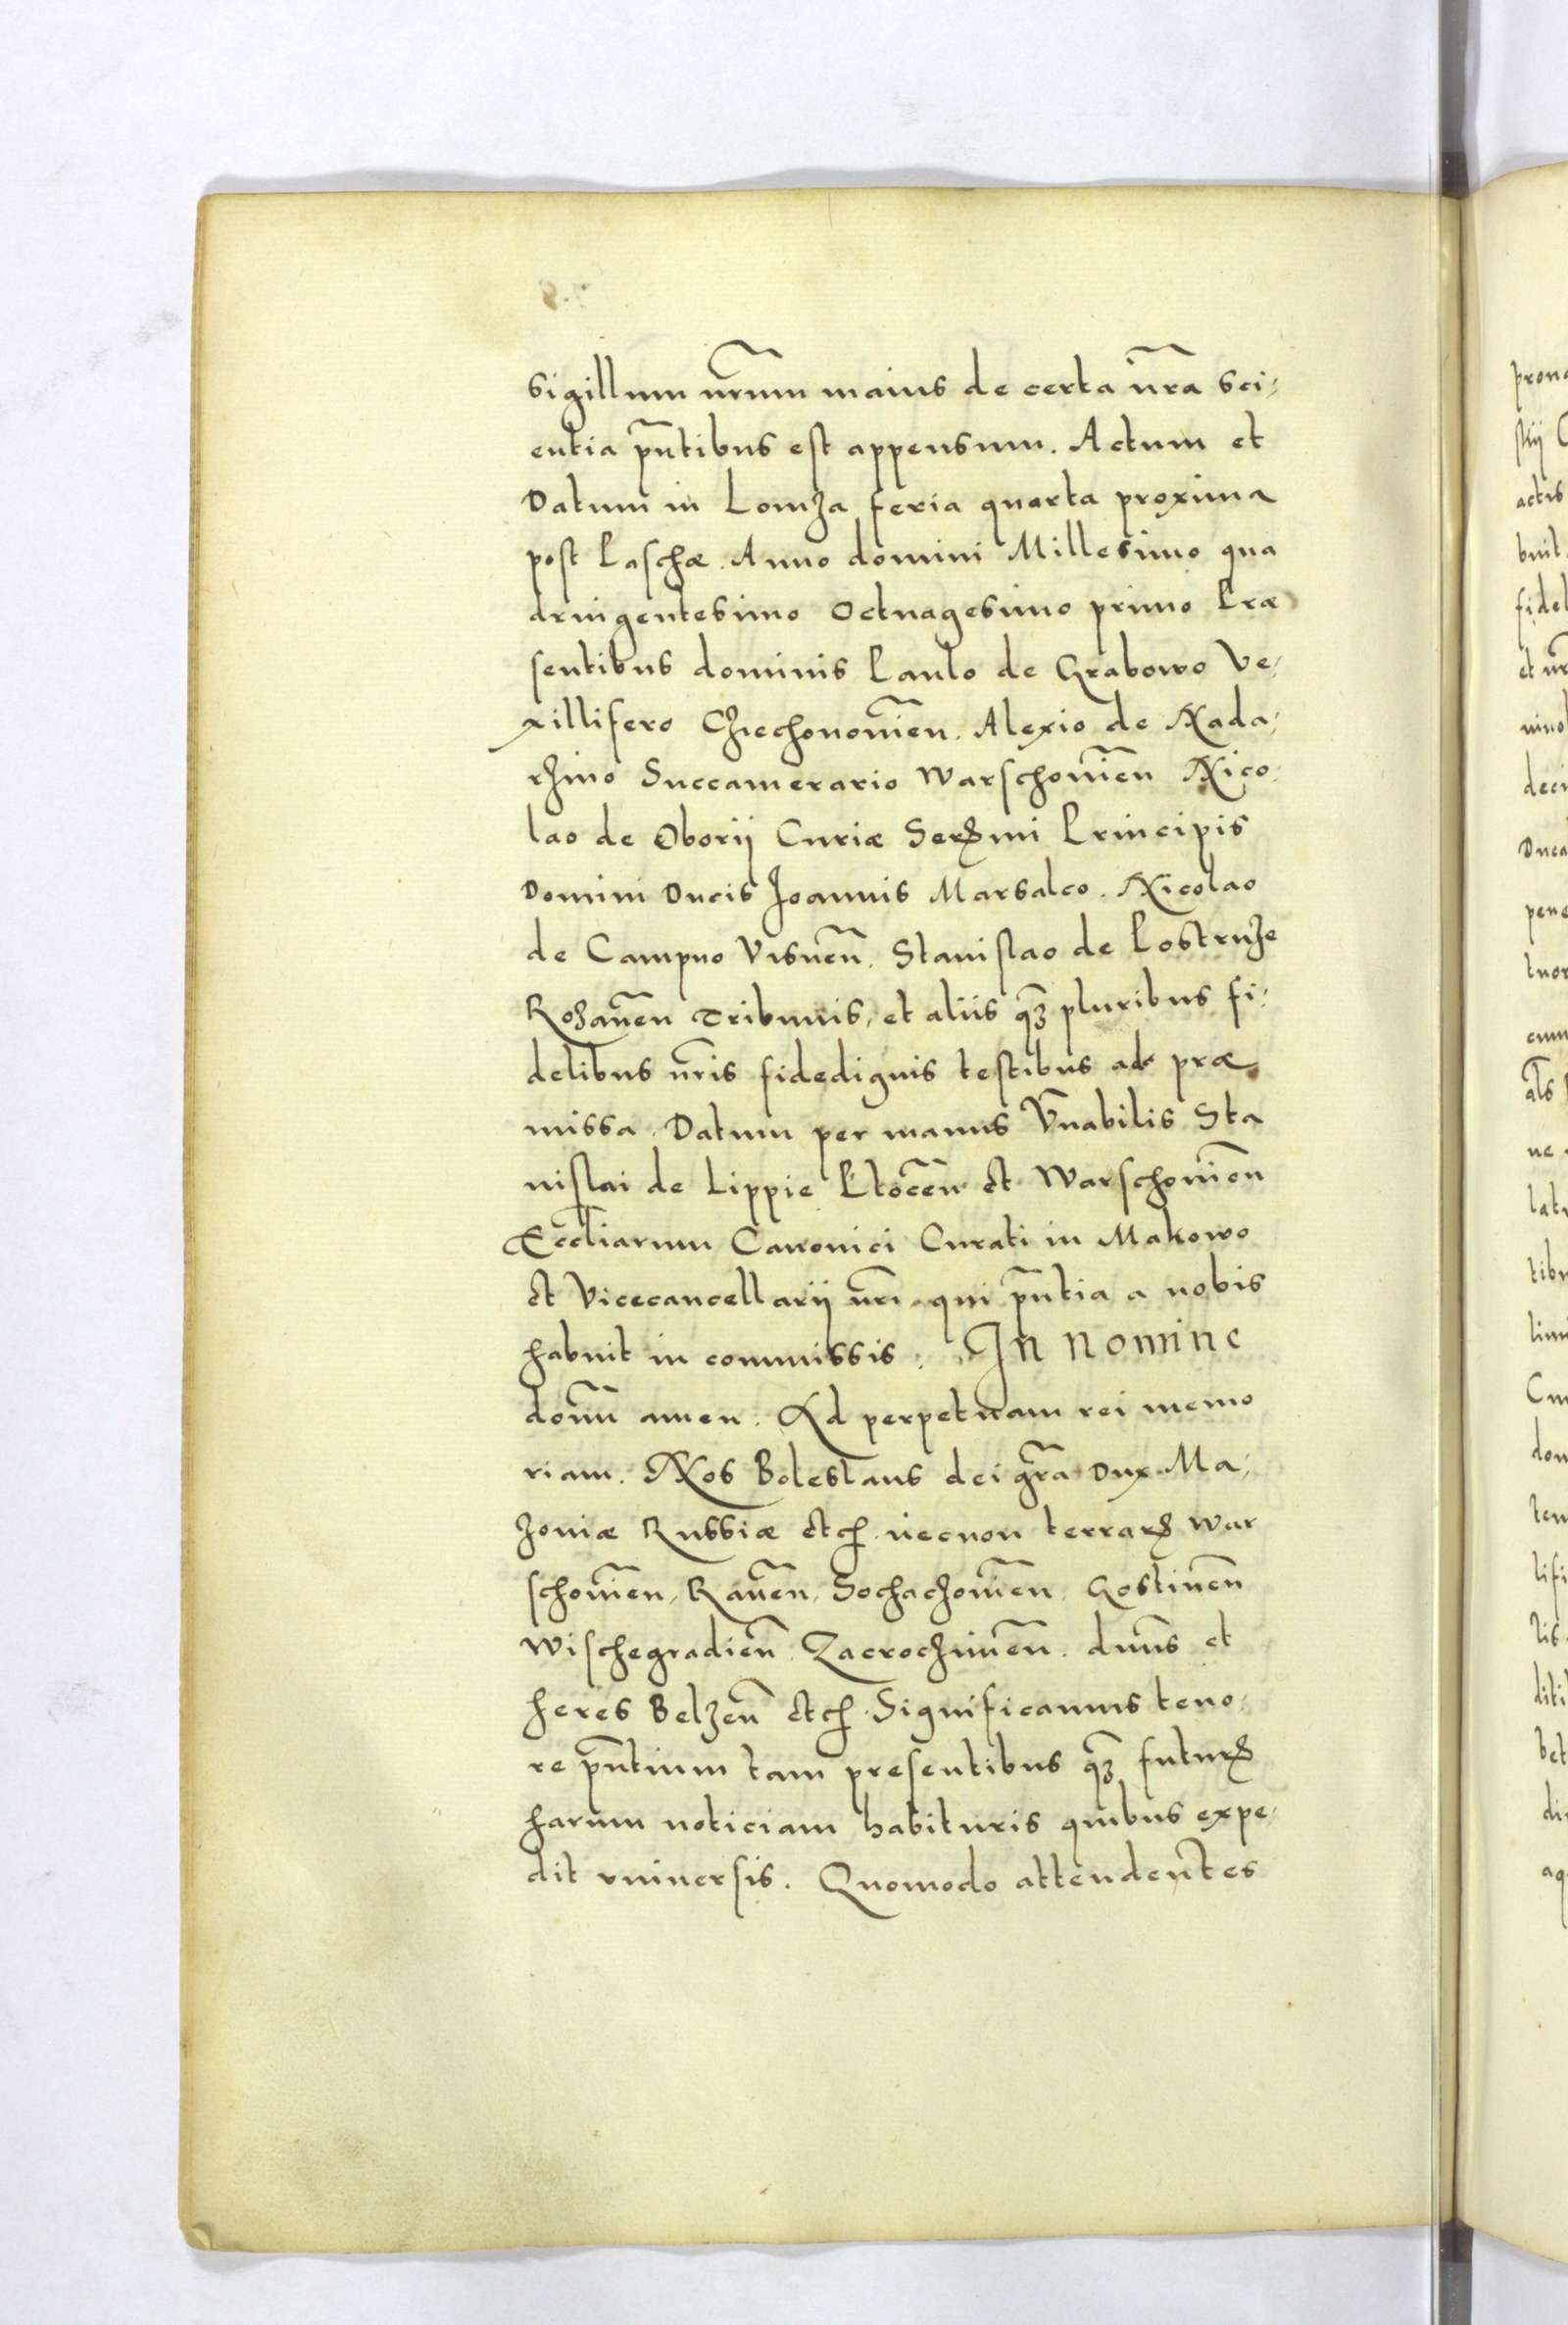 sigillum nr̃um maius de certa nr̃a sci-
entia pñtibus est appensum. Actum et
Datum in Lomza feria quarta proxima
post Paschæ. Anno domini Millesimo qua
dringentesimo Octuagesimo primo Præ
sentibus dominis Paulo de Grabowo Ve-
xillifero Cziechonovień. Alexio de Nada-
rzino Succamerario Warschovień Nico-
lao de Oborij Curiæ Serꝫmi Principis
Domini Ducis Joannis Marsalco. Nicolao
de Campno Visneñ. Stanislao de Postruze
Rozaneñ Tribunis, et aliis qꝫ pluribus fi-
delibus nr̃is fidedignis testibus ad præ
missa. Datum per manus Vñabilis Sta
nislai de Lippie Ploceñ et Warschovień
Eccl̃iarum Canonici Curati in Makowo
et Vicecancellarij nr̃i qui pñtia a nobis
habuit in commissis. In nomine
domĩ amen. Ad perpetuam rei memo
riam. Nos Boleslaus dei gr̃a Dux Ma-
zoviæ Russiæ etc. necnon terrarꝫ War
schovień, Raveñ, Sochaczovień, Gostineñ
Wischegradień Zacrocimeñ. dñus et
heres Belzeñ etc. Significamus teno-
re pñtium tam presentibus qꝫ futurꝫ
harum noticiam habituris quibus expe-
dit universis. Quomodo attendentes